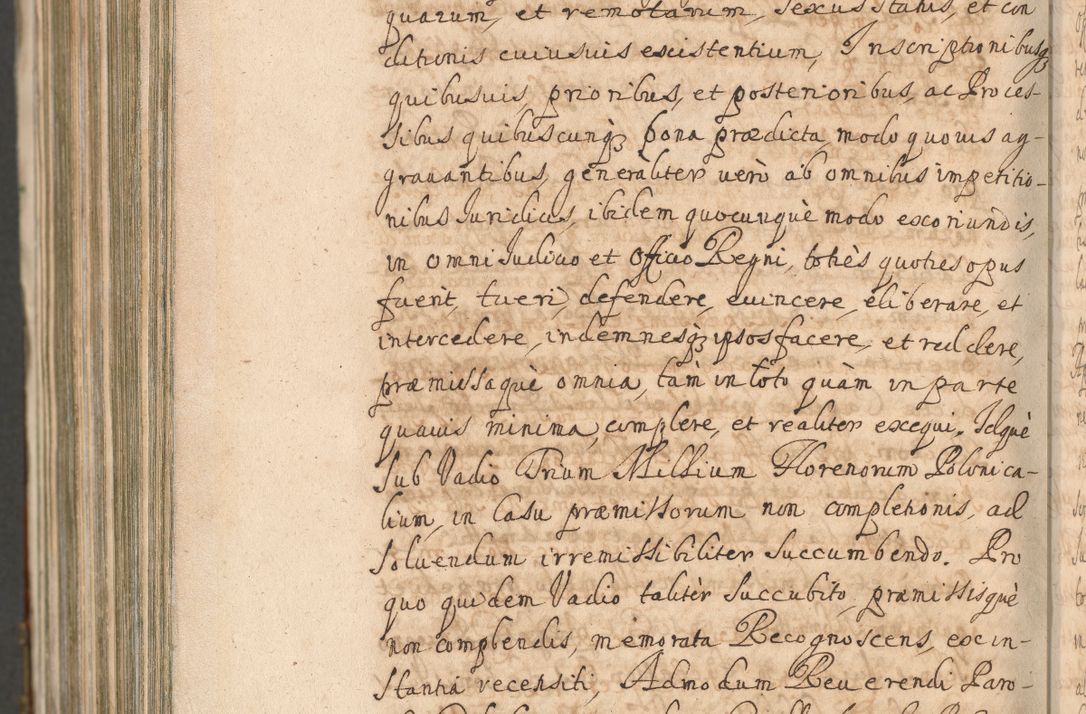 quarum, et remotarum, Sexus Status, et con
ditionis cuiusuis existentium, Inscriptionibusq3
quibusuis, prioribus, et posterioribus, ac Proces
sibus quibuscunq3 bona prædicta modo quouis ag-
grauantibus, generaliter verò ab omnibus impetitio-
nibus Iuridicis, ibidem quocunquè modo exoriundis,
in omni Iudicio et Officio Regni, totiès quoties opus
fuerit, tueri, defendere, euincere, eliberare, et
intercedere, indemnesq3 ipsos facere, et reddere,
præmissaquè omnia, tàm in toto quàm in parte
quauis minima, complere, et realiter exequi. Idquè
Sub Vadio Trium Millium Florenorum Polonica-
lium, in Casu præmissorum non completionis, ad
soluendum irremissibiliter Succumbendo. Pro
quo quidem Vadio taliter Succubito præmissisquè
non complendis, memorata Recognoscens, ex in-
stantia recensiti, Admodum Reuerendi Paro-